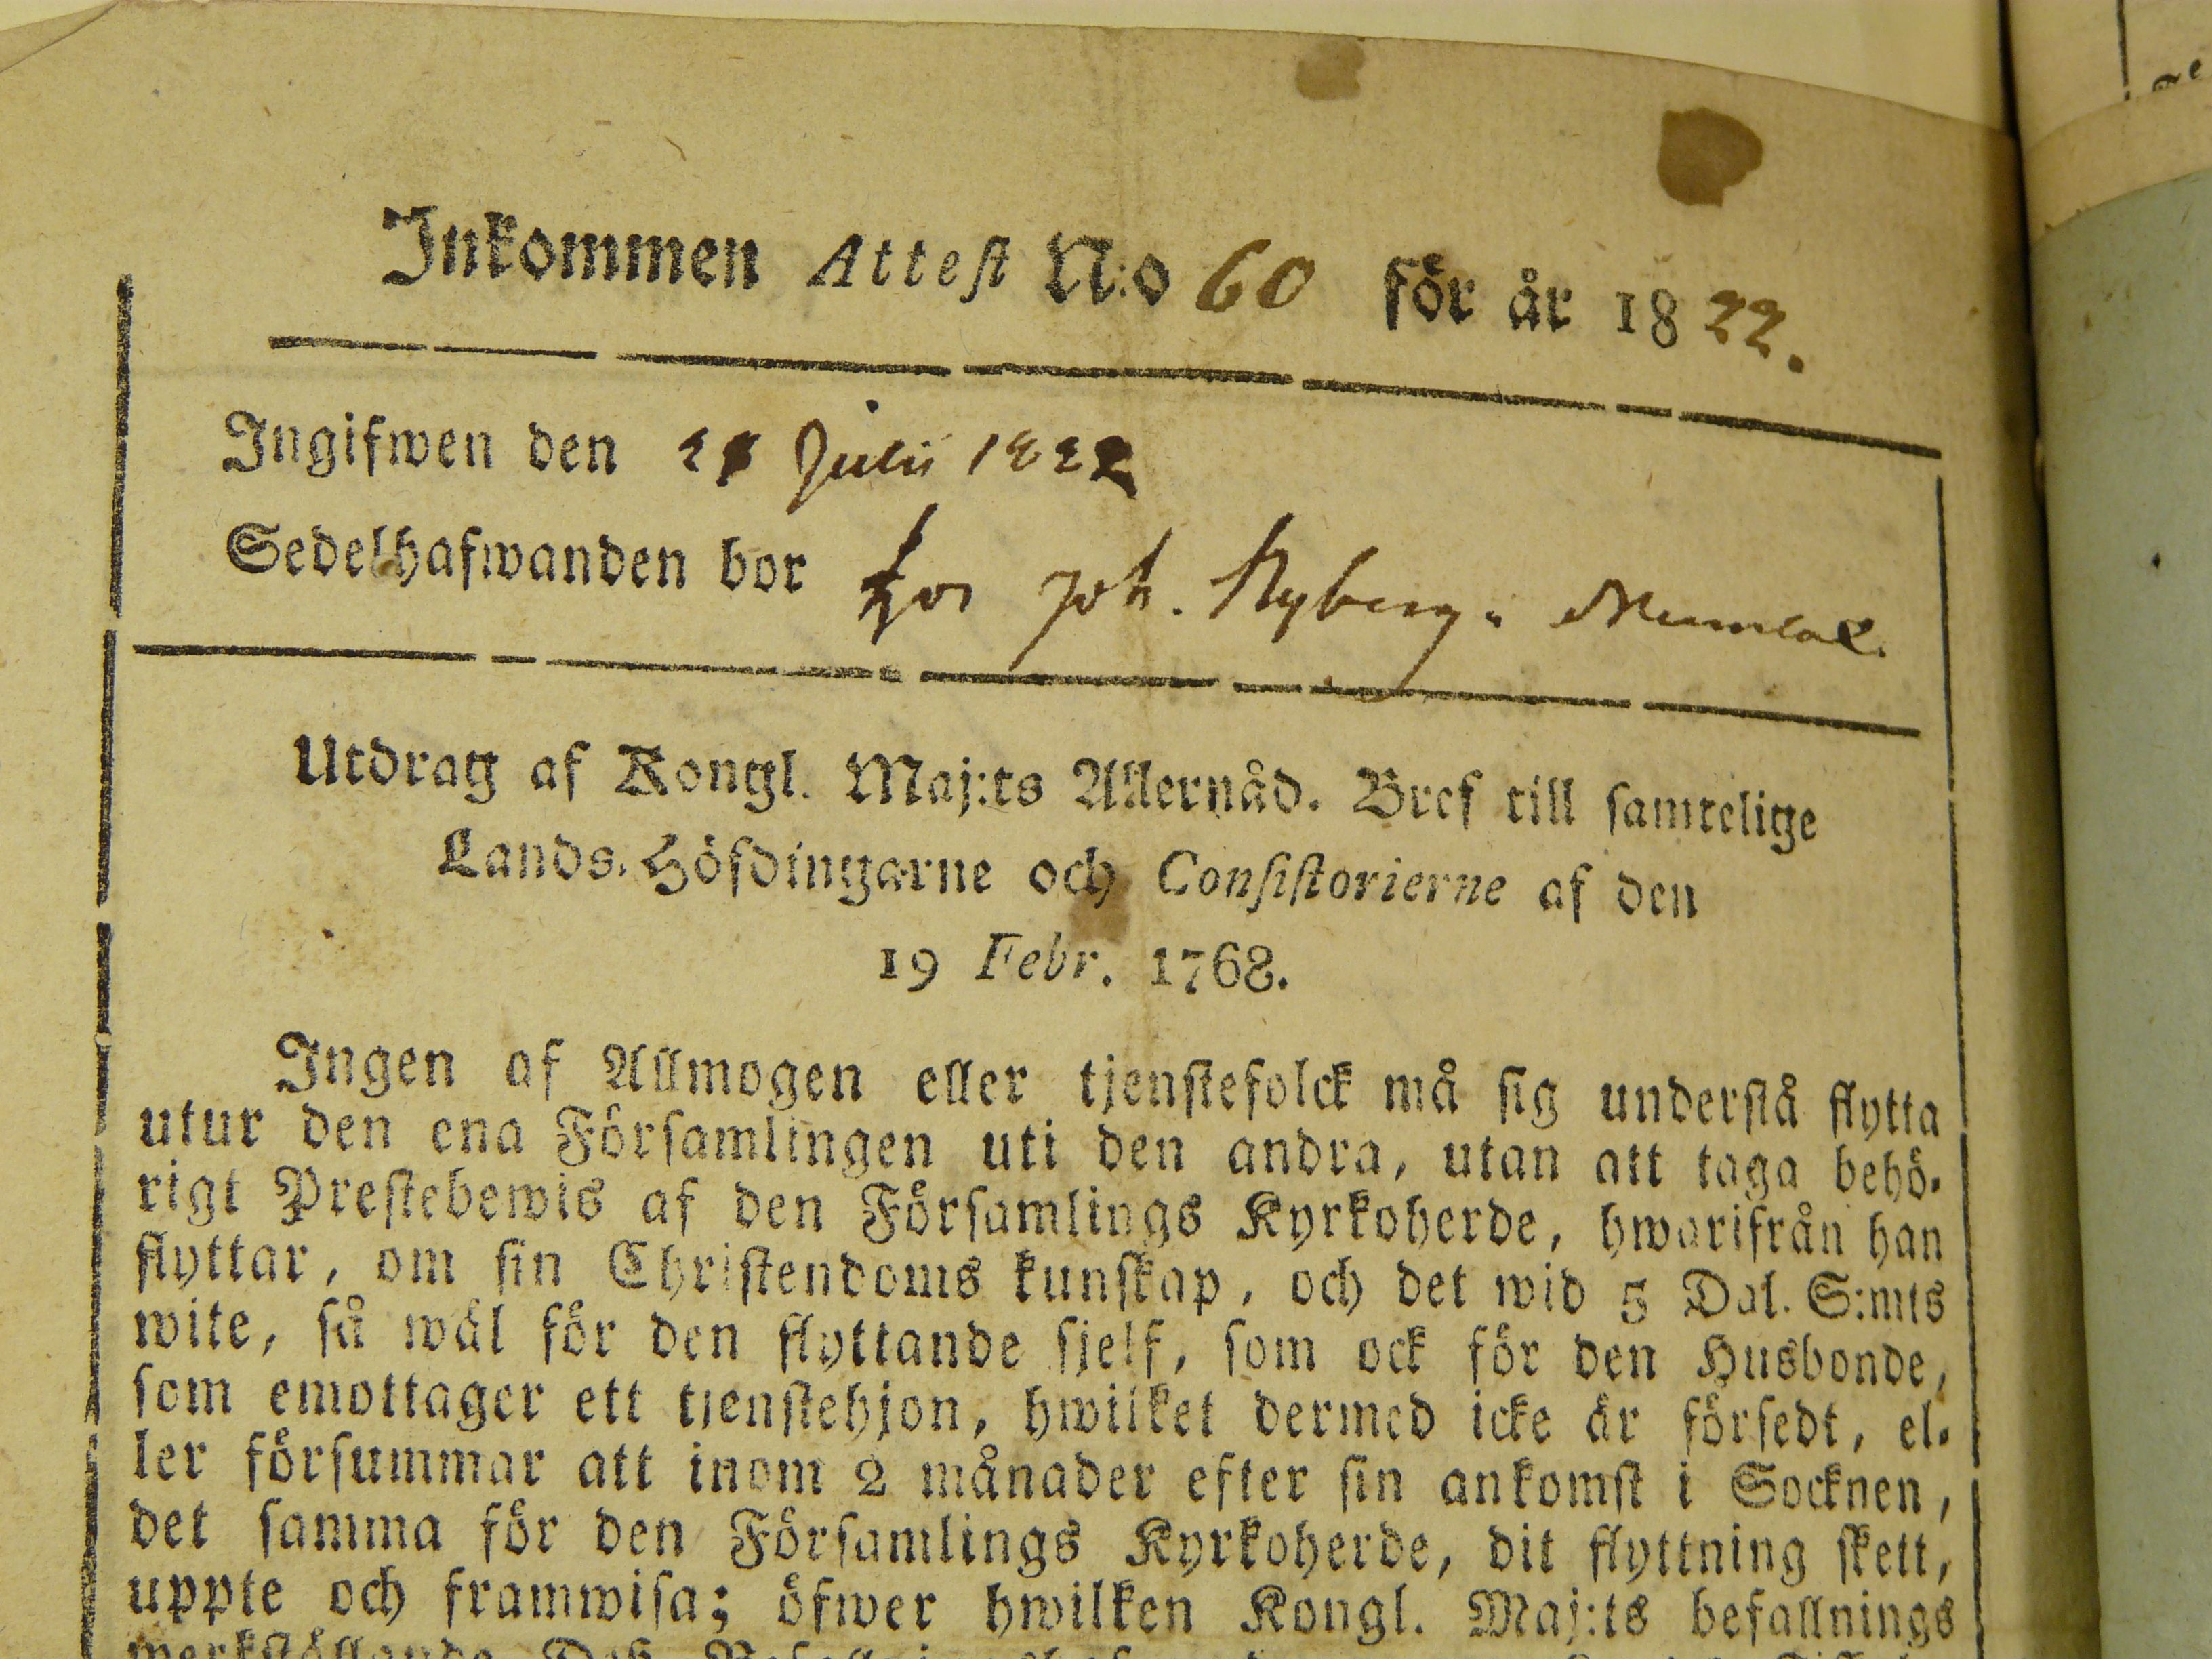 Inkommen Attest N:o 60 för år 1822.
Ingifwen den Julii 1822
Sedelhafwanden bor hos Joh. Nyberg
Utdrag af Kongl. Maj:ts Allernåd. Bref till samtelige
Lands-Höfdingarne och Consistorierne af den
19 Febr. 1768.
Ingen af Allmogen eller tjenstefolck må sig understå flytta
utur den ena Församlingen uti den andra, utan att taga behö-
rigt Prestebewis af den Församlings Kyrkoherde, hwarifrån han
flyttar, om sin Christendoms kunskap, och det wid 5 Dal. S:mts
wite, så wäl för den flyttande sjelf, som ock för den Husbonde,
som emottager ett tjenstehjon, hwilket dermed icke är försedt, el-
ler försummar att inom 2 månader efter sin ankomst i Socknen,
det samma för den Församlings Kyrkoherde, dit flyttning skett,
uppte och framwisa; öfwer hwilken Kongl. Maj:ts befallnings